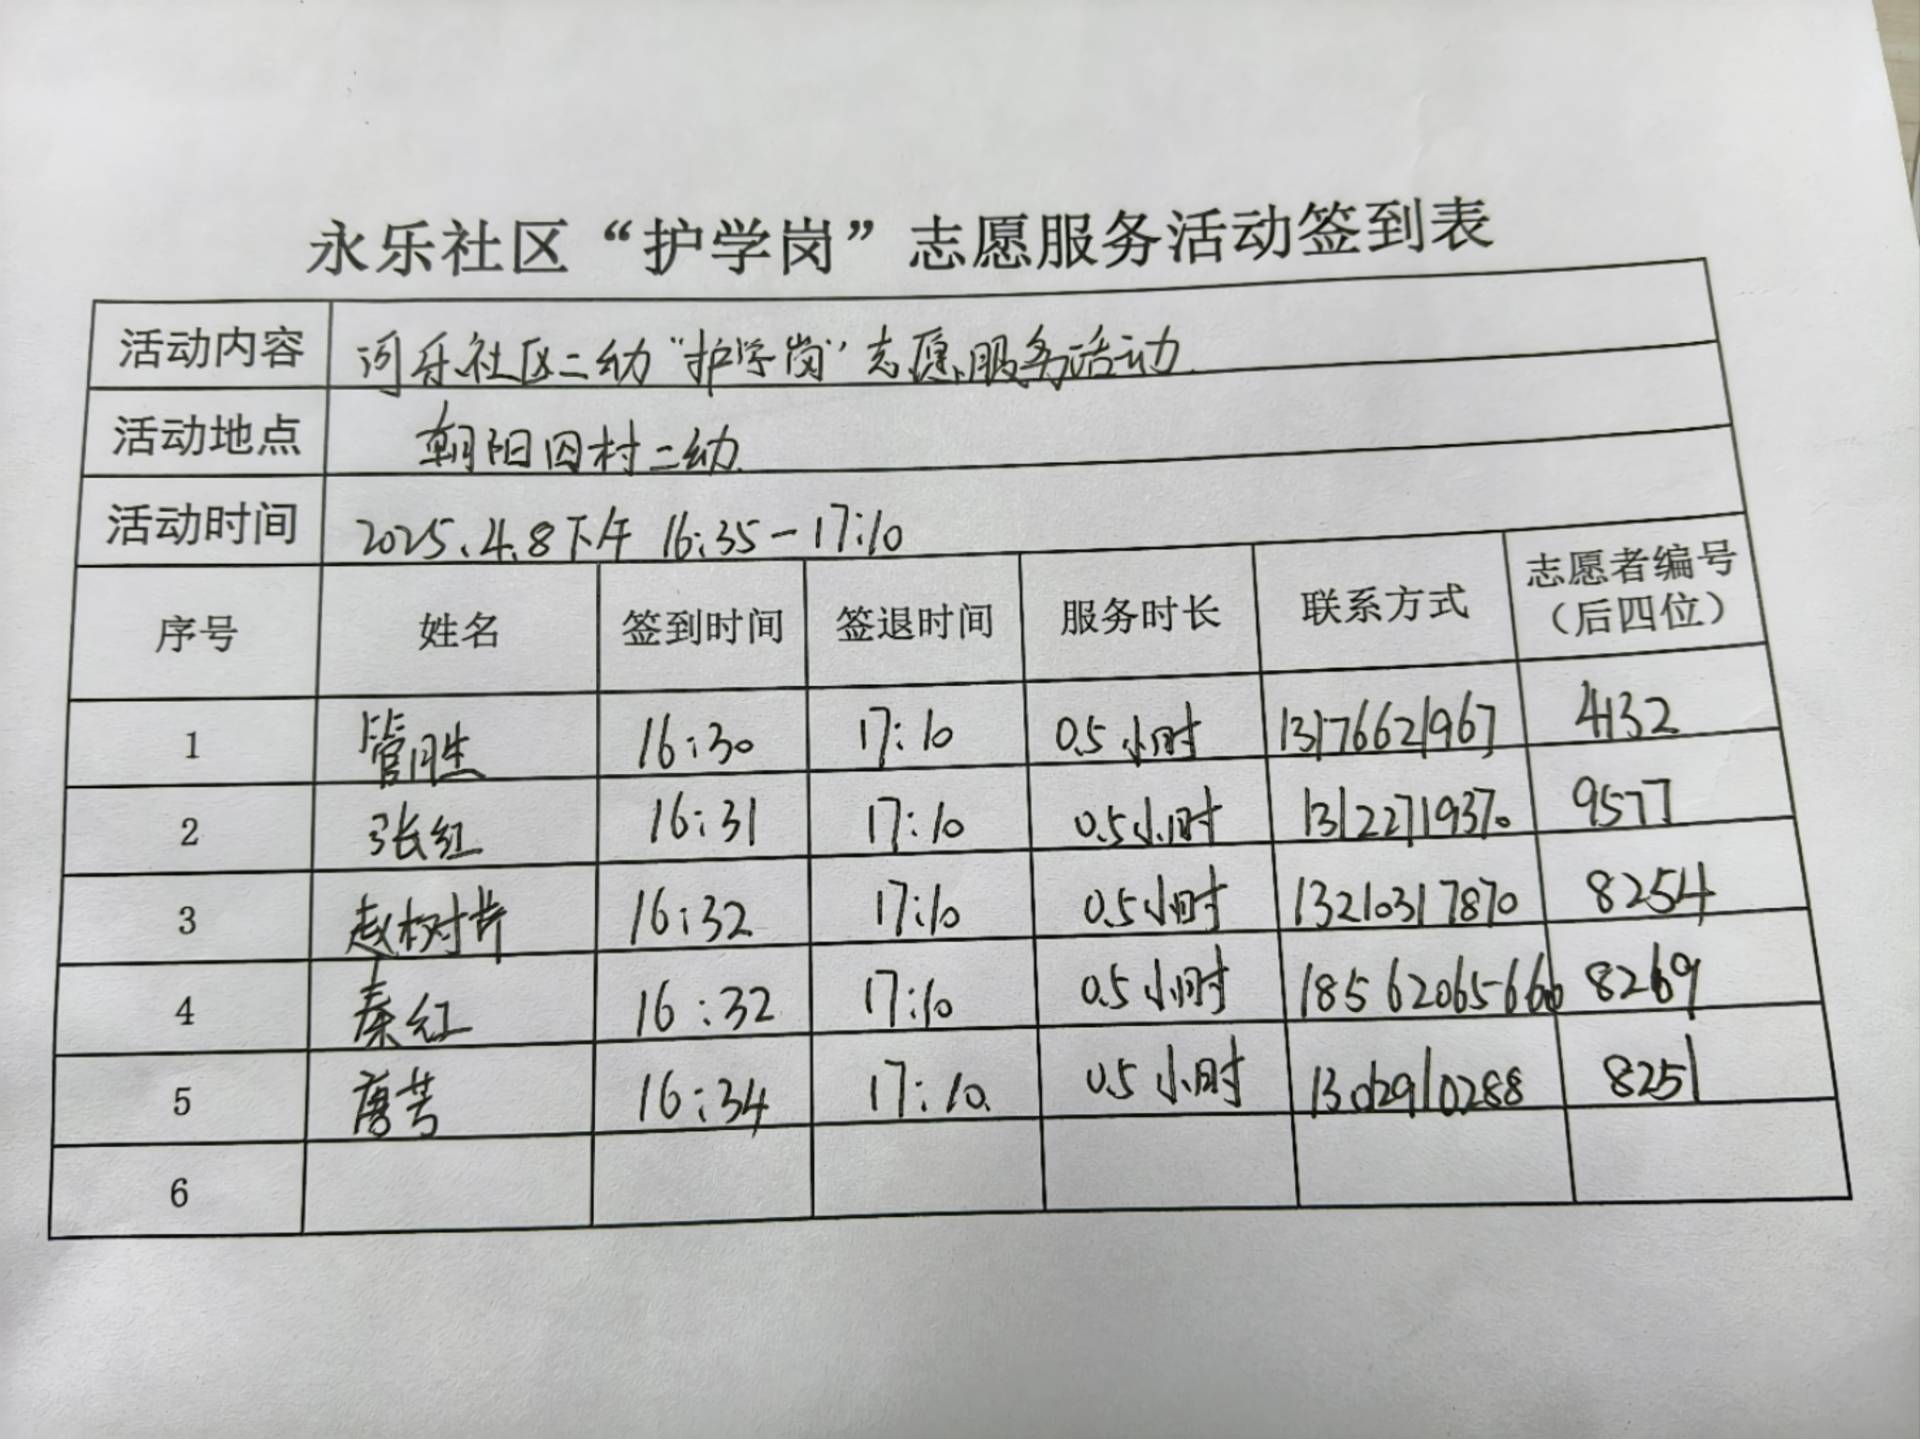 永乐社区“护学岗”志愿服务活动签到表
活动内容 河乐社区二幼“护学岗”志愿服务活动.
活动地点 朝阳囚村二幼.
活动时间 2025.4.8下午 16:35-17:10
序号 姓名 签到时间 签退时间 服务时长 联系方式 志愿者编号（后四位）
1 管胜 16:30 17:10 0.5小时 13176621967 4132
2 张红 16:31 17:10 0.5小时 13122719370 9577
3 赵树 16:32 17:10 0.5小时 13210317870 8254
4 秦红 16:32 17:10 0.5小时 18562065666 8269
5 唐芳 16:34 17:10. 0.5小时 13012910288 8251
6